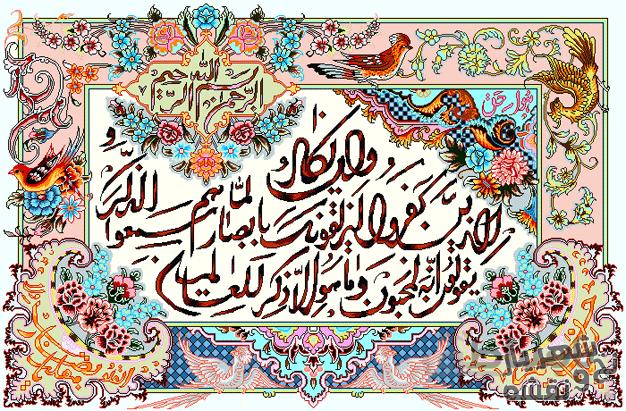 بسم الله الرحمن الرحیم
وان یکاد
الذین کفروا لیزلقونک بابصارهم لما سمعوا الذکر و
یقولون انه لمجنون وما هو الا ذکر للعالمین
شهریار
نخ و نقشه